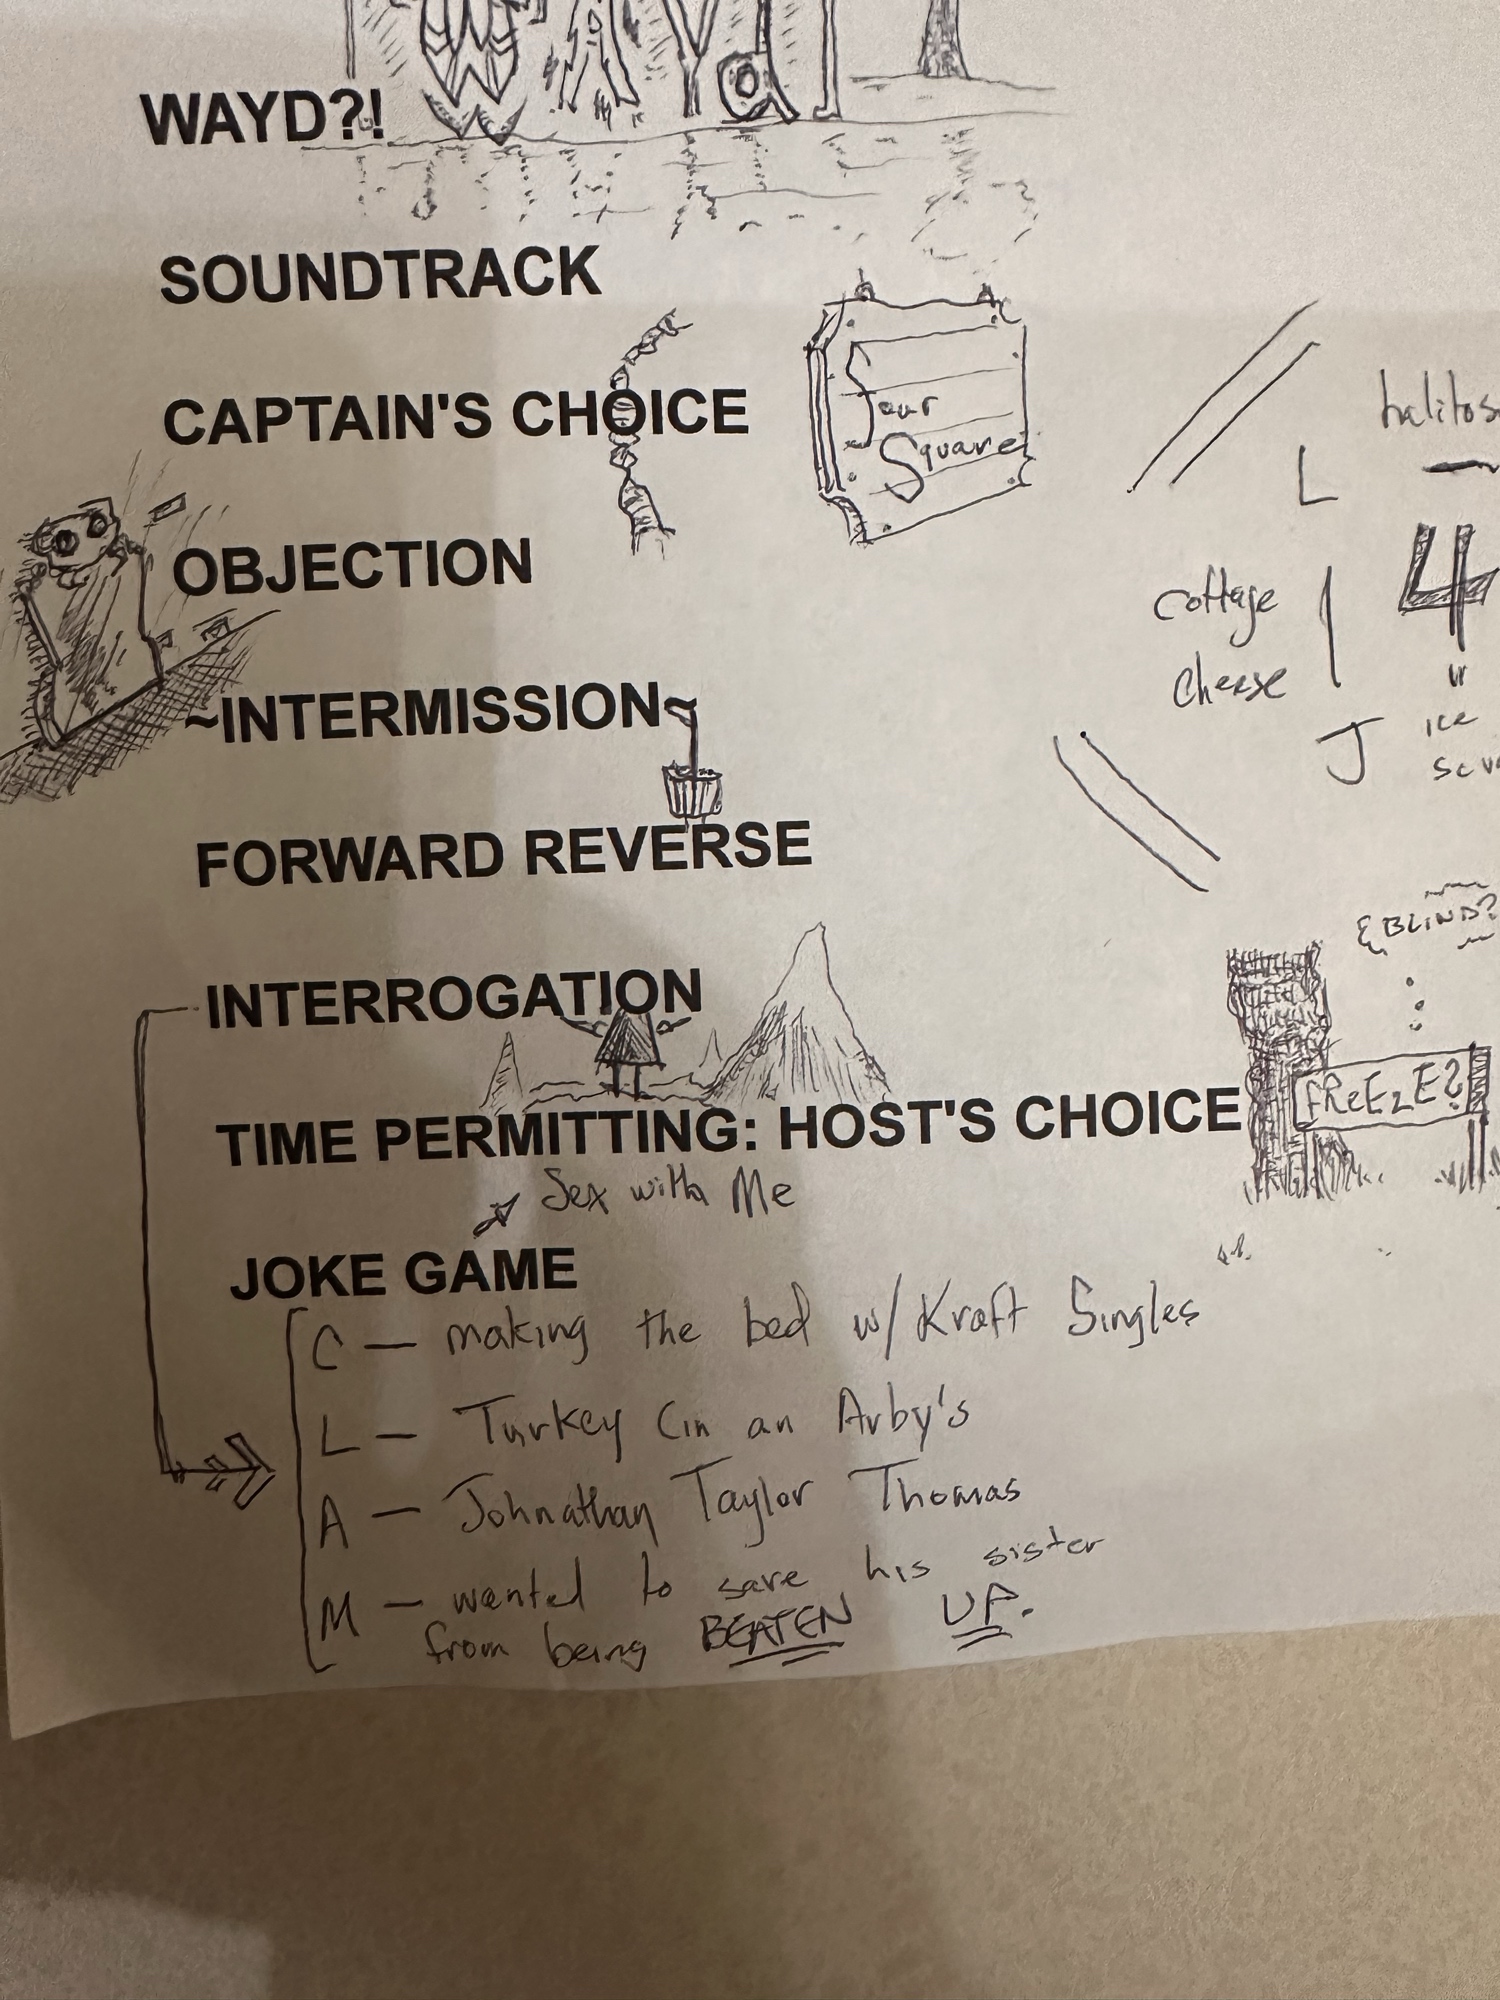 WAYD?!
SOUNDTRACK
CAPTAIN'S CHOICE
Four
Square
halitos
L
OBJECTION
cottage
cheese
4
ice
J
~INTERMISSION~
FORWARD REVERSE
BLIND?
INTERROGATION
FREEZE?
TIME PERMITTING: HOST'S CHOICE
Sex with Me
JOKE GAME
C — making the bed w/ Kraft Singles
L — Turkey (in an Arby's
A — Johnathan Taylor Thomas
M — wanted to save his sister
from being BEATEN UP.